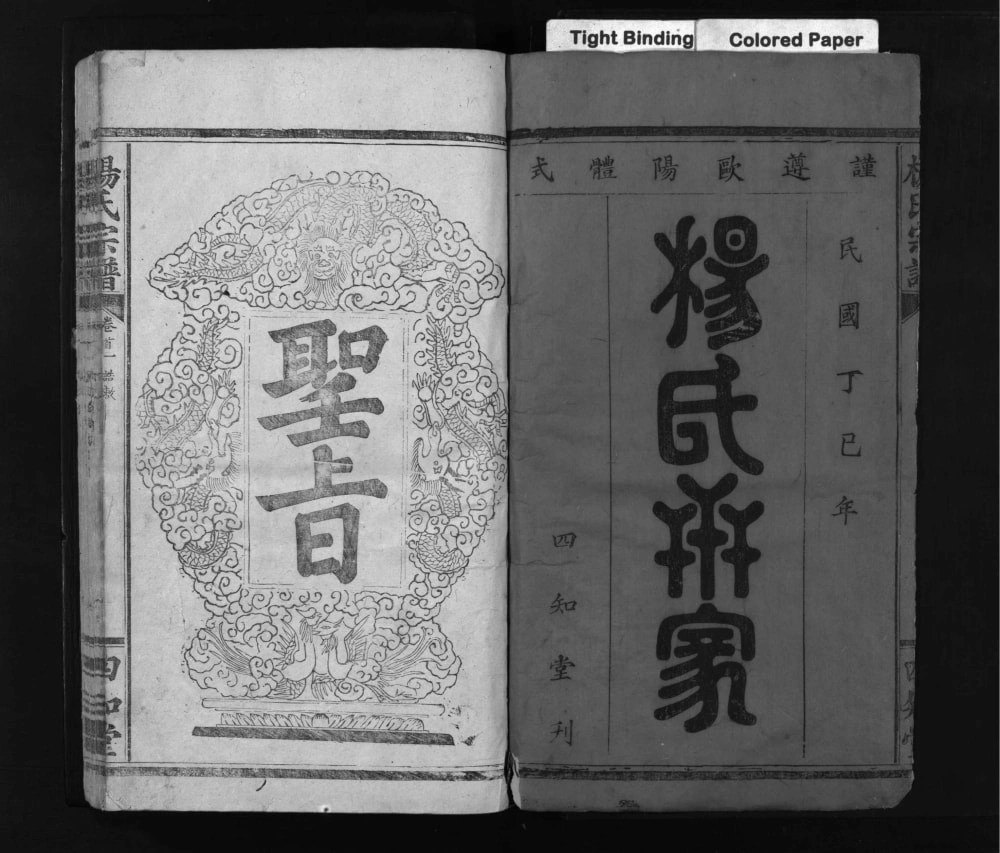 Tight Binding
Colored Paper
謹遵歐陽體式
民國丁巳年
楊氏家
四知堂刊
聖旨
楊氏宗譜
卷首一 誥敕
四知堂